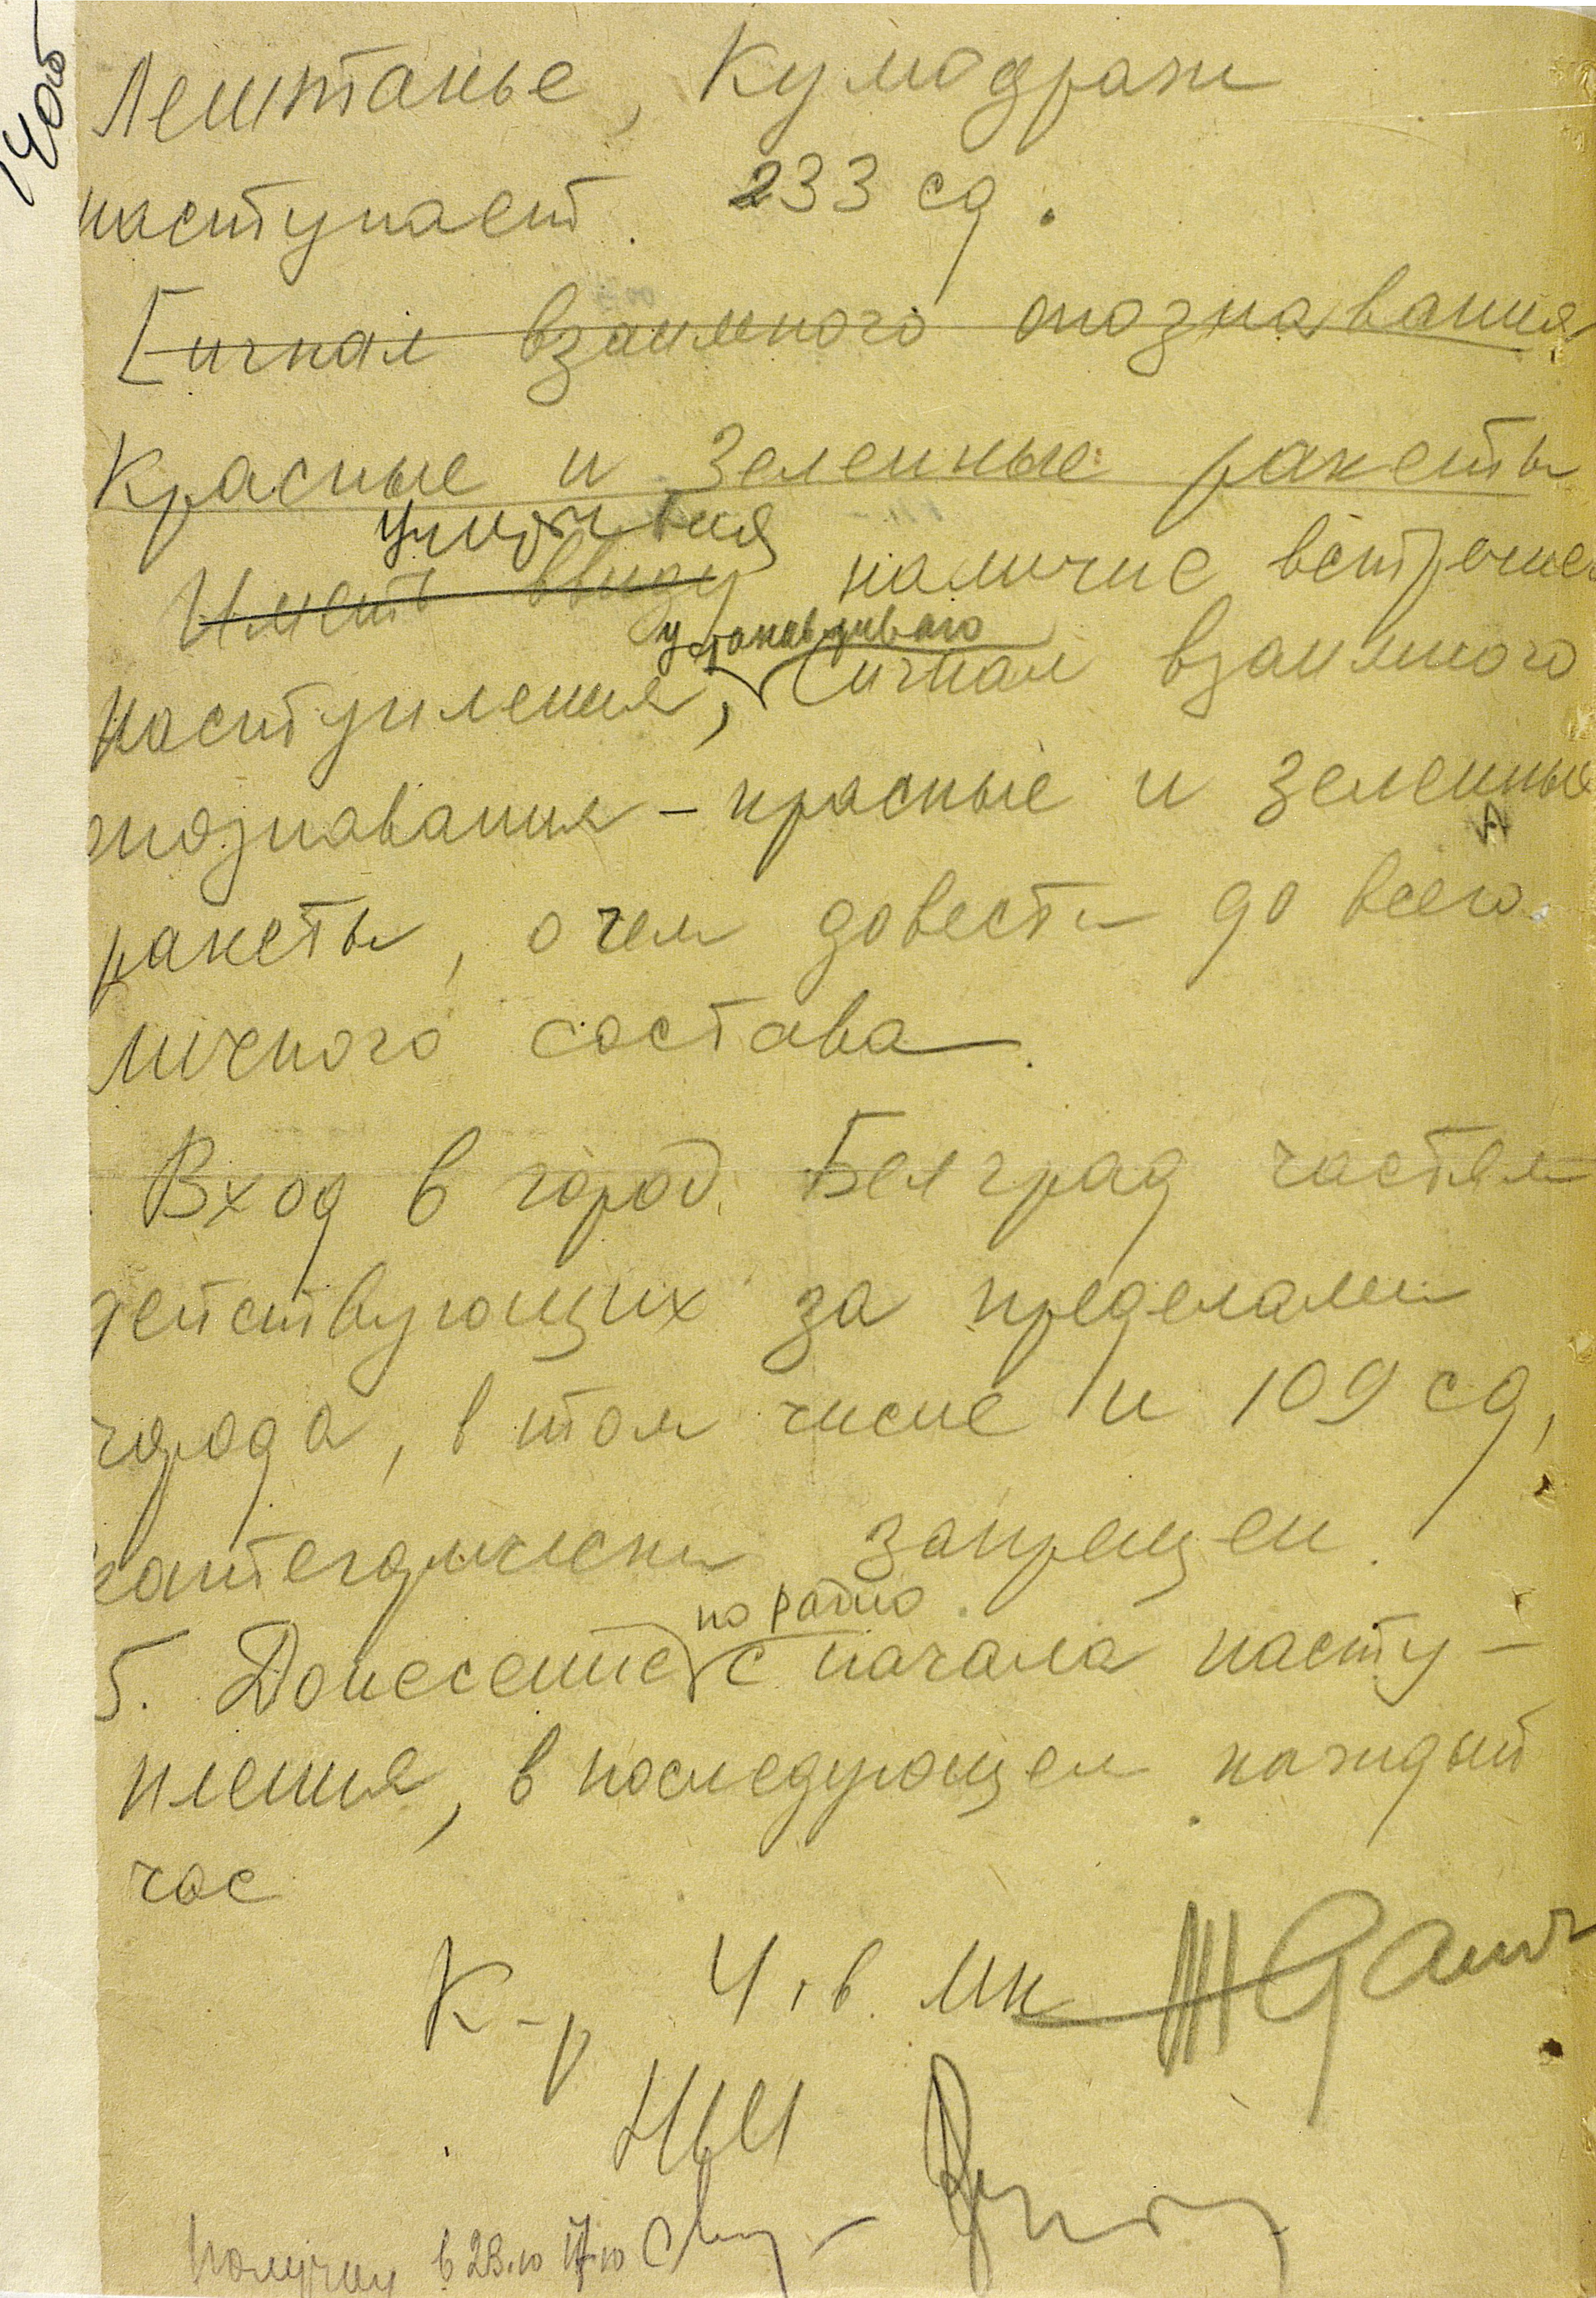 140об
Лештанье, Кумодраж
наступает 233 сд.
Сигнал взаимного опознавания
Красные и Зеленные ракеты
учитывая
Иметь ввиду наличие встречнего
устанавливаю
наступления, Сигнал взаимного
опознавания – красные и зеленные
ракеты, о чем довести до всего
личного состава.
Вход в город Белград частям
действующих за пределами
города, в том числе и 109 сд,
категорически запрещен.
по радио
5. Донесение с начала насту-
пления, в последующем каждый
час
К-р 4 гв. мк Жданов
НШ
Получен в 23.10 17.10